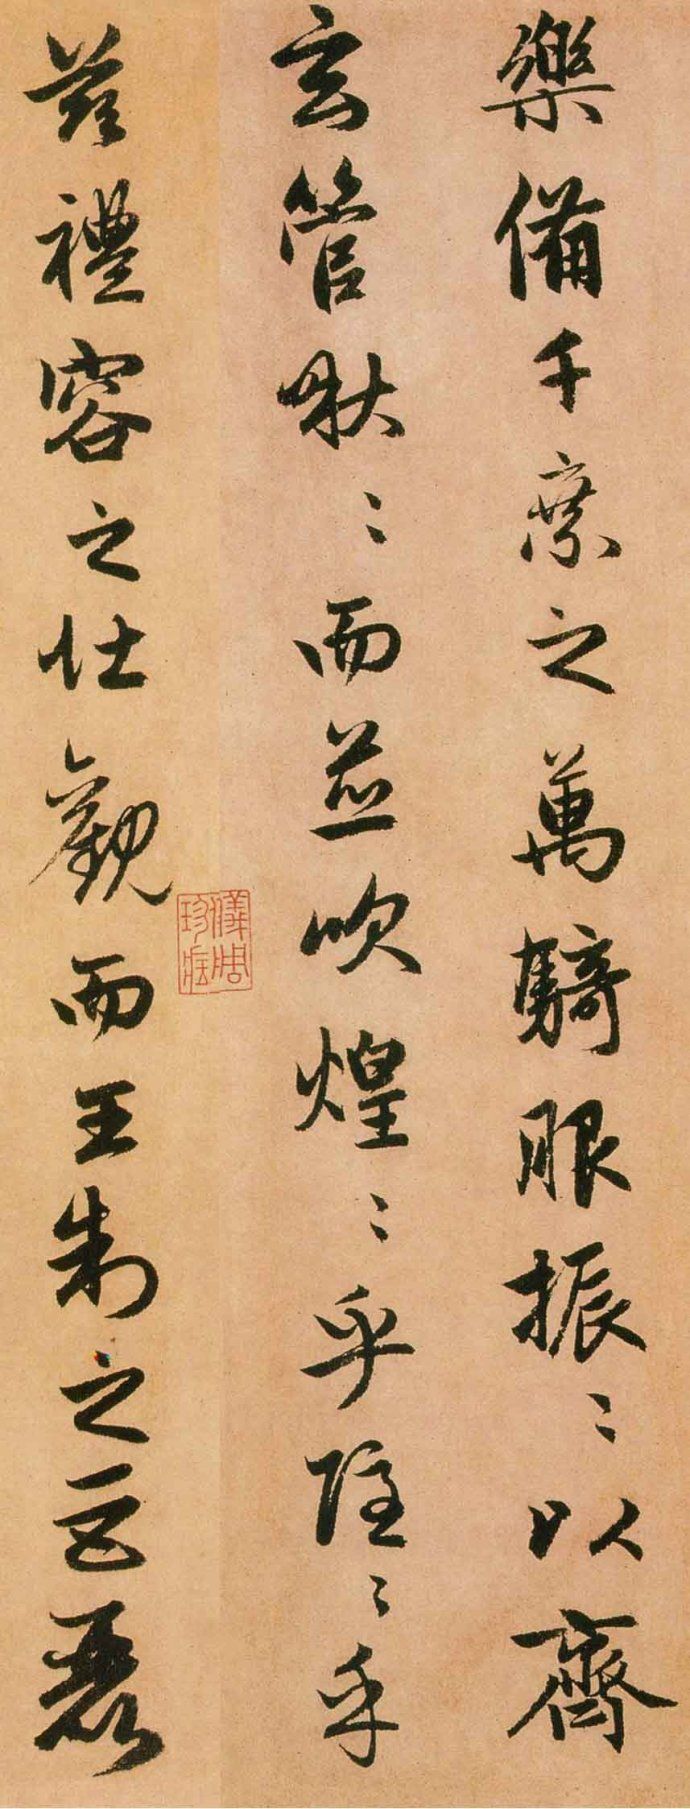 樂備千乘之萬騎服振〻以齊
玄管啾〻而並吹煌〻乎隱〻乎
茲禮容之壯觀而王制之巨麗
儀周珍藏